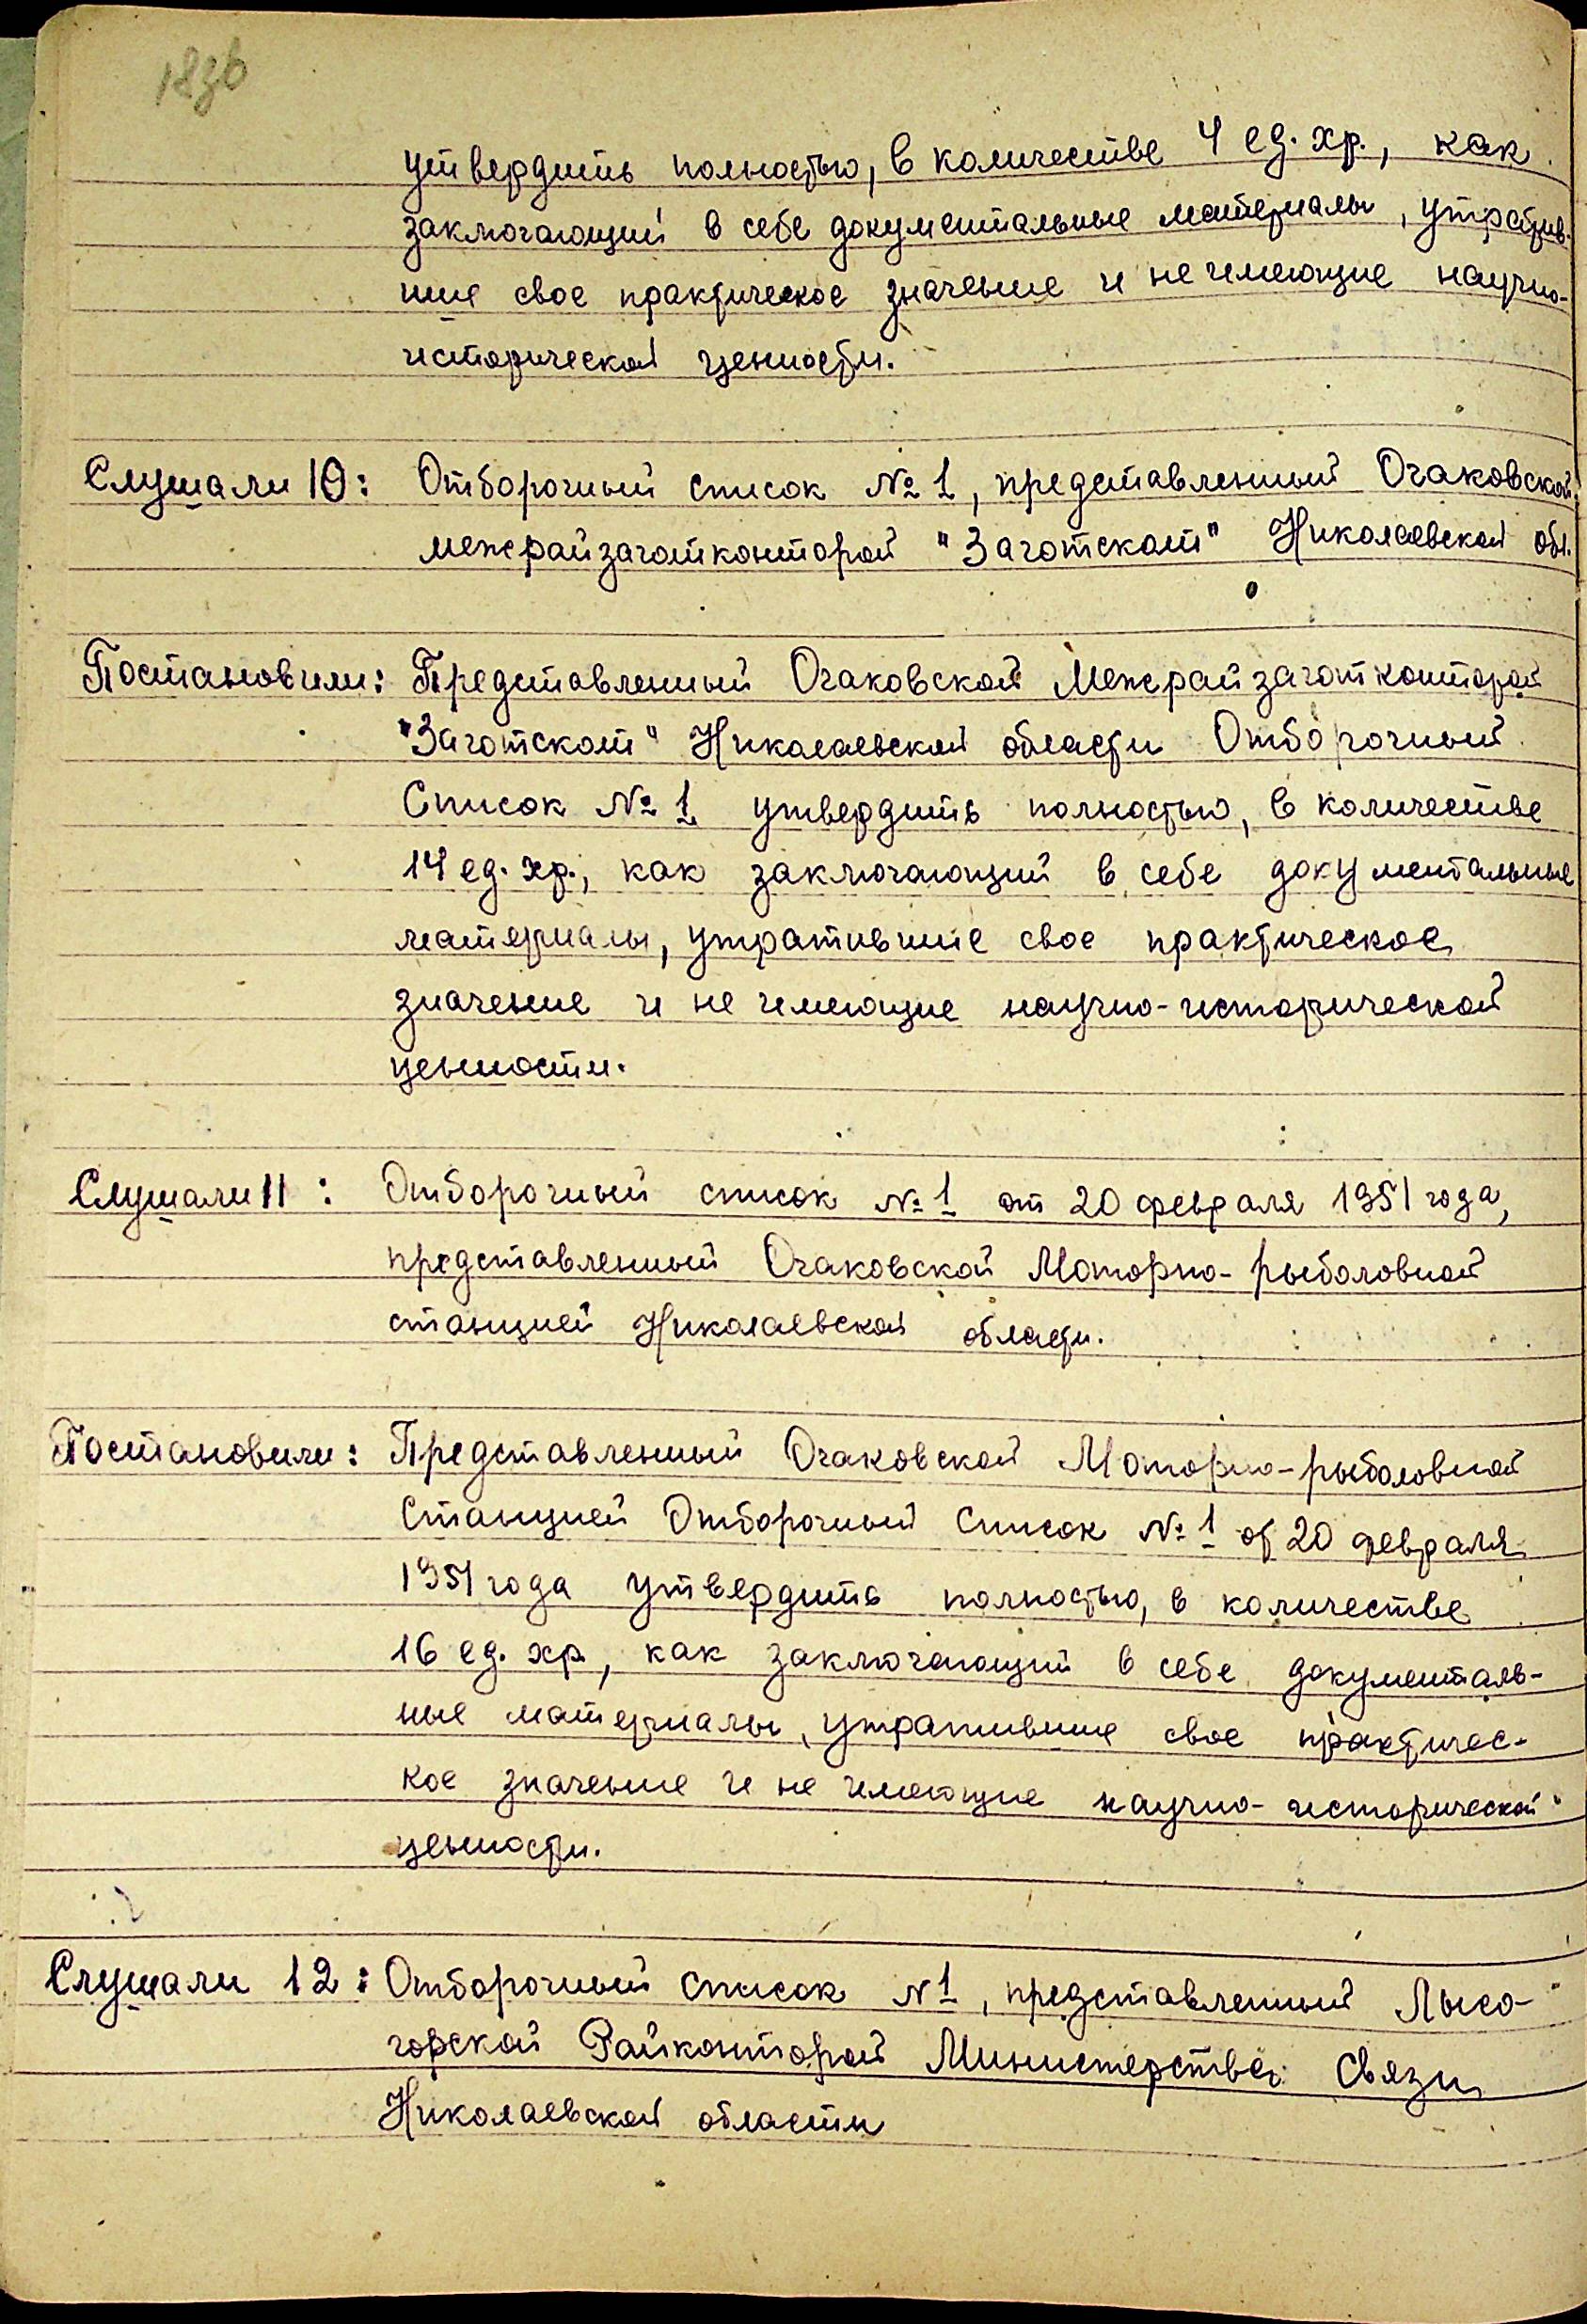 183б
утвердить полностью, в количестве 4 ед. хр., как
заключающий в себе документальные материалы, утратив-
шие свое практическое значение и не имеющие научно-
исторической ценности.
Слушали 10: Отборочный список № 1, представленный Очаковской
межрайзаготконторой "Заготскот" Николаевской обл.
Постановили: Представленный Очаковской Межрайзаготконторой
"Заготскот" Николаевской области Отборочный
Список № 1 утвердить полностью, в количестве
14 ед. хр., как заключающий в себе документальные
материалы, утратившие свое практическое
значение и не имеющие научно-исторической
ценности.
Слушали 11: Отборочный список № 1 от 20 февраля 1951 года,
представленный Очаковской Моторно-рыболовной
станцией Николаевской области.
Постановили: Представленный Очаковской Моторно-рыболовной
Станцией Отборочный Список № 1 от 20 февраля
1951 года утвердить полностью, в количестве
16 ед. хр., как заключающий в себе документаль-
ные материалы, утратившие свое практичес-
кое значение и не имеющие научно-исторической
ценности.
Слушали 12: Отборочный список № 1, представленный Лысо-
горской Райконторой Министерства Связи
Николаевской области